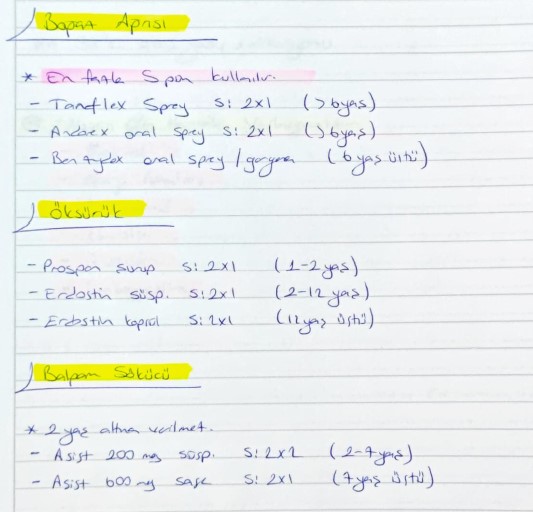 Boğaz Ağrısı
* En fazla 5 gün kullanılır.
- Tanflex Sprey S: 2x1 (>6yaş)
- Andorex oral sprey S: 2x1 (>6yaş)
- Bentydex oral sprey / gargara (6 yaş üstü)
Öksürük
- Prospan şurup S: 2x1 (1-2 yaş)
- Erdostin süsp. S: 2x1 (2-12 yaş)
- Erdostin kapsül S: 2x1 (12 yaş üstü)
Balgam Sökücü
* 2 yaş altına verilmez.
- Asist 200 mg süsp. S: 2x2 (2-7 yaş)
- Asist 600 mg saşe S: 2x1 (7 yaş üstü)